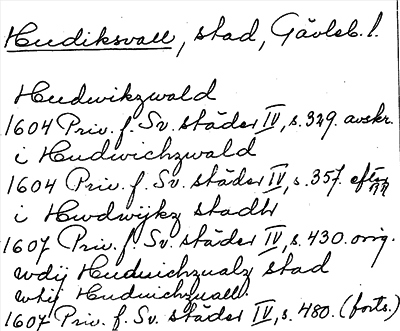 Hudiksvall, stad, Gävleb. l.
Hudwikzwald
1604 Priv. f. Sv. städer IV, s. 329. avskr.
i Hudwichzwald
1604 Priv. f. Sv. städer IV, s. 357. efter
i Hwdwijkz stadh
1607 Priv. f. Sv. städer IV, s. 430. orig.
wdij Hudwichzualz stad
Hudwichzuall.
1607 Priv. f. Sv. städer IV, s. 480. (forts.)